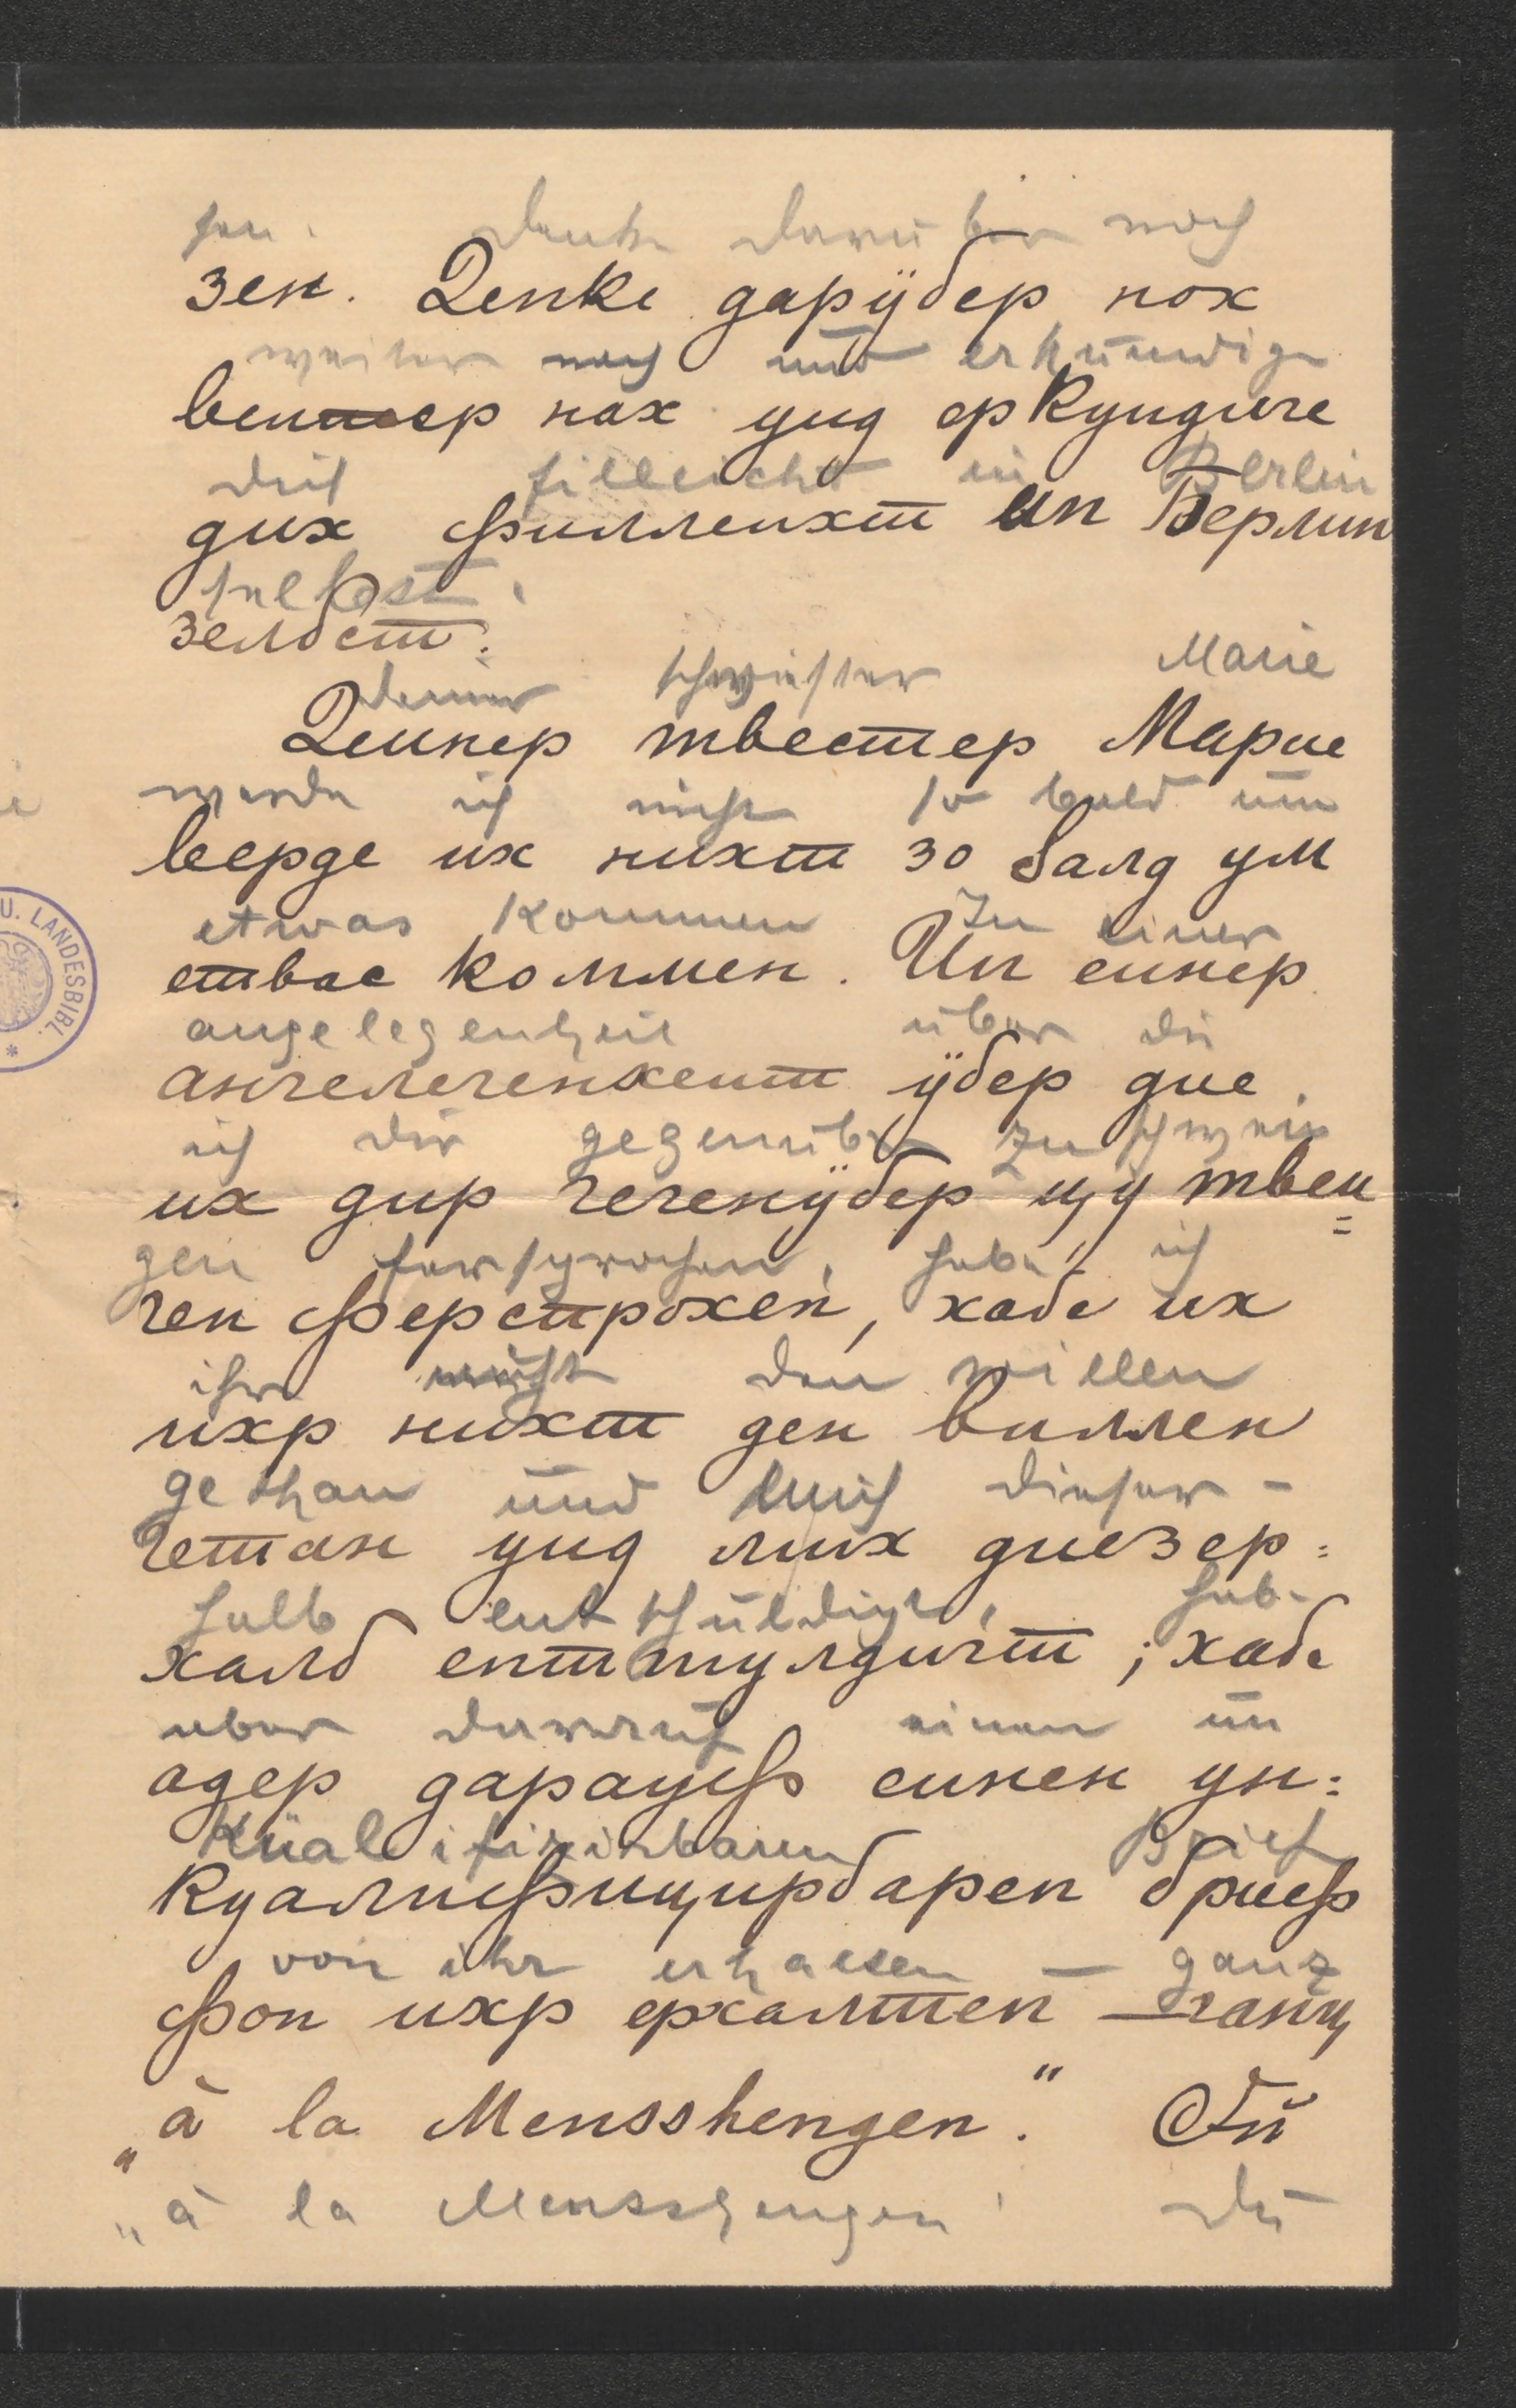 sen. Denke darüber noch
зен. Денке дарӱбер нох
weiter nach und erkundige
веитер нах унд еркундиге
dich filleicht in Berlin
дих филлеихт ин Берлин
selbst.
зелбст.
Deiner schwester Marie
Деинер твестер Марие
werde ich nicht so bald um
веерде их нихт зо балд ум
etwas kommen In einer
етвас коммен. Ин еинер
angelegenheit über die
ангелегенхеит ӱбер дие
ich dir gegenüber zu schwei
их дир гегенӱбер цу твеи=
gen fersprochen, habe ich
ген ферспрохен, хабе их
ihr nicht den willen
ихр нихт ден виллен
gethan und mich dieser-
гетан унд мих диезер=
halb entschuldigt, hab-
халб ентшулдигт; хабе
aber darauf einen un
адер дарауф еинен ун=
kualifizirbaren Brief
куалифицирбарен бриеф
von ihr erhalten — ganz
фон ихр ерхалтен — ганц
„à la Mensshengen." Du
„à la Mensshengen' du
U. LANDESBIBL. *